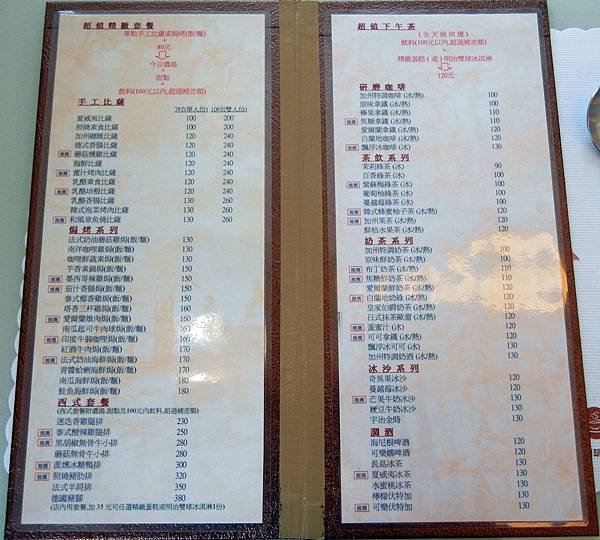 超值精緻套餐
單點手工比薩或焗烤(飯/麵)
+
80元
今日濃湯
+
甜點
+
飲料(100元以內,超過補差額)
手工比薩
夏威夷比薩 100 200
照燒素食比薩 100 200
加州總匯比薩 120 240
德式香腸比薩 120 240
推薦 蘑菇燻雞比薩 120 240
海鮮比薩 120 240
推薦 蜜汁烤肉比薩 120 240
乳酪素食比薩 120 240
推薦 乳酪培根比薩 120 240
乳酪香腸比薩 130 260
韓式泡菜烤肉比薩 130 260
推薦 和風章魚燒比薩 130 260
焗烤系列
法式奶油蘑菇雞焗(飯/麵) 130
南洋咖哩雞焗(飯/麵) 130
咖哩鮮蔬素焗(飯/麵) 130
芋香素錦焗(飯/麵) 130
推薦 墨西哥辣雞焗(飯/麵) 150
推薦 茄汁香腸焗(飯/麵) 150
泰式椰香雞焗(飯/麵) 150
塔香三杯雞焗(飯/麵) 160
推薦 愛爾蘭燉肉焗(飯/麵) 160
南瓜起司牛肉球焗(飯/麵) 160
推薦 印度牛腩咖哩焗(飯/麵) 160
紅酒牛肉焗(飯/麵) 170
推薦 法式奶油海鮮焗(飯/麵) 170
青醬蛤蜊海鮮焗(飯/麵) 170
南瓜海鮮焗(飯/麵) 180
鮭魚海鮮焗(飯/麵) 180
西式套餐
(西式套餐附濃湯.甜點及100元內飲料,超過補差額)
迷迭香雞腿排 230
推薦 泰式酸辣雞腿排 250
推薦 黑胡椒無骨牛小排 280
蘑菇無骨牛小排 280
推薦 蔗燻冰糖鴨 300
推薦 照燒豬肋排 320
法式羊肩排 350
德國豬腳 380
(店內用套餐,加 35 元可任選精緻蛋糕或明治雙球冰淇淋1份)
超值下午茶
(全天候供應)
飲料(100元以內,超過補差額)
+
精緻蛋糕 ( 或 ) 明治雙球冰淇淋
120元
研磨咖啡
加州特調咖啡 (冰/熱) 100
原味拿鐵 (冰/熱) 100
榛果拿鐵 (冰/熱) 110
推薦 焦糖拿鐵 (冰/熱) 110
愛爾蘭拿鐵 (冰/熱) 120
白蘭地咖啡 (冰/熱) 120
推薦 飄浮冰咖啡 (冰/熱) 130
茶飲系列
茉莉綠茶 (冰) 90
百香綠茶 (冰) 100
推薦 紫蘇梅綠茶 (冰/熱) 100
葡萄柚綠茶 (冰) 100
蔓越莓綠茶 (冰) 100
推薦 韓式蜂蜜柚子茶 (冰/熱) 120
推薦 加州果茶 (冰/熱) 120
鮮桔水果茶 (冰/熱) 120
奶茶系列
加州特調奶茶 (冰/熱) 100
原味鮮奶茶 (冰/熱) 100
推薦 布丁奶茶 (冰/熱) 110
推薦 焦糖鮮奶茶 (冰/熱) 110
愛爾蘭鮮奶茶 (冰/熱) 120
推薦 白蘭地奶綠 (冰/熱) 120
皇家伯爵奶茶 (冰/熱) 120
日式抹茶歐蕾 (冰/熱) 120
推薦 蛋蜜汁 (冰) 120
推薦 可可拿鐵 (冰/熱) 130
飄浮冰可可 (冰) 130
加州特調奶酒 (冰/熱) 130
冰沙系列
奇異果冰沙 120
蔓越莓冰沙 120
推薦 芒果牛奶冰沙 130
綠豆牛奶冰沙 130
宇治金時 130
調酒
海尼根啤酒 120
可樂娜啤酒 120
長島冰茶 130
推薦 夏威夷冰茶 130
水蜜桃冰茶 130
檸檬伏特加 130
推薦 可樂伏特加 130